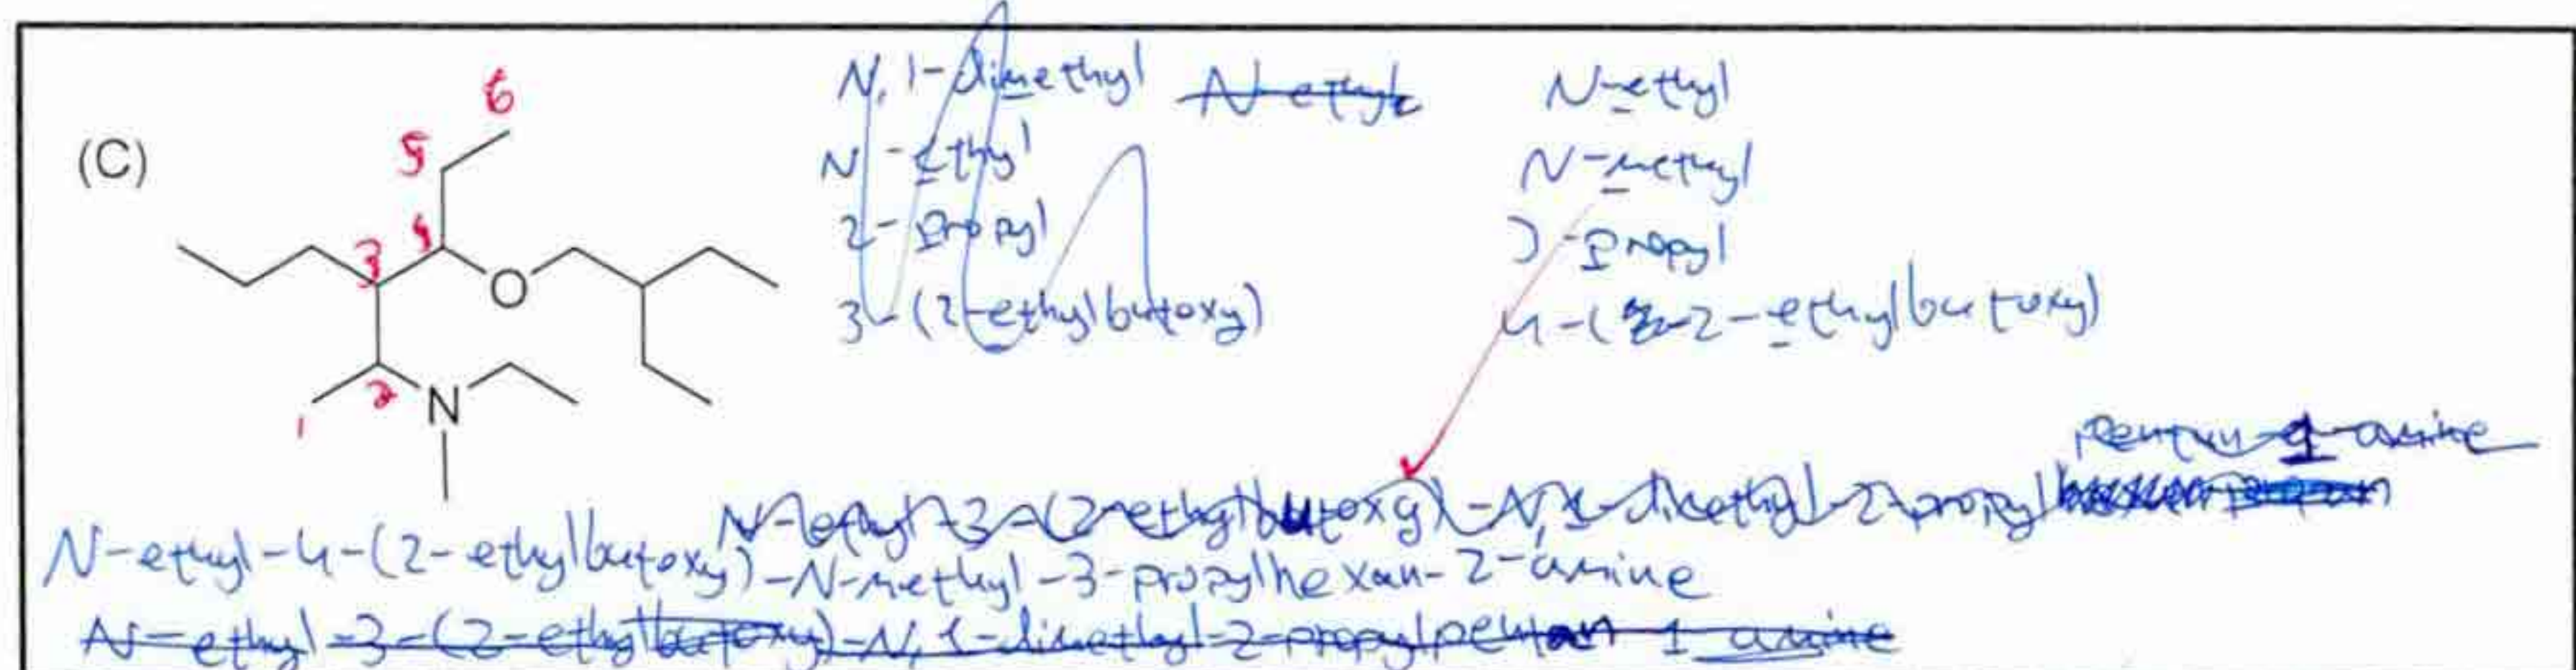 (C)
6
5
4
3
2
1
O
N
N,1-dimethyl N-ethyl
N-ethyl
2-propyl
3-(2-ethylbutoxy)
N-ethyl
N-methyl
3-propyl
4-(2-ethylbutoxy)
pentan-1-amine
N-ethyl-3-(2-ethylbutoxy)-N,1-dimethyl-2-propyl
N-ethyl-4-(2-ethylbutoxy)-N-methyl-3-propylhexan-2-amine
N-ethyl-3-(2-ethylbutoxy)-N,1-dimethyl-2-propylpentan 1 amine